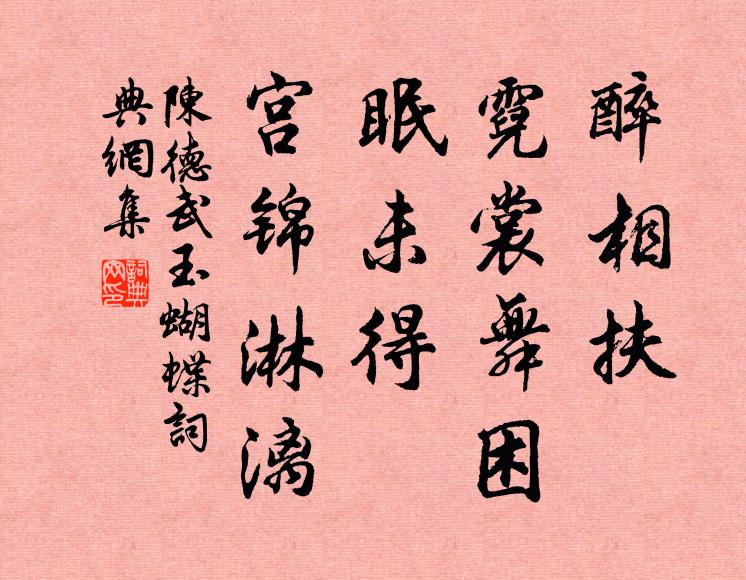 醉相扶
霓裳舞困
眠未得
宫锦淋漓
陳德武玉蝴蝶詞
典網集
詞典网印